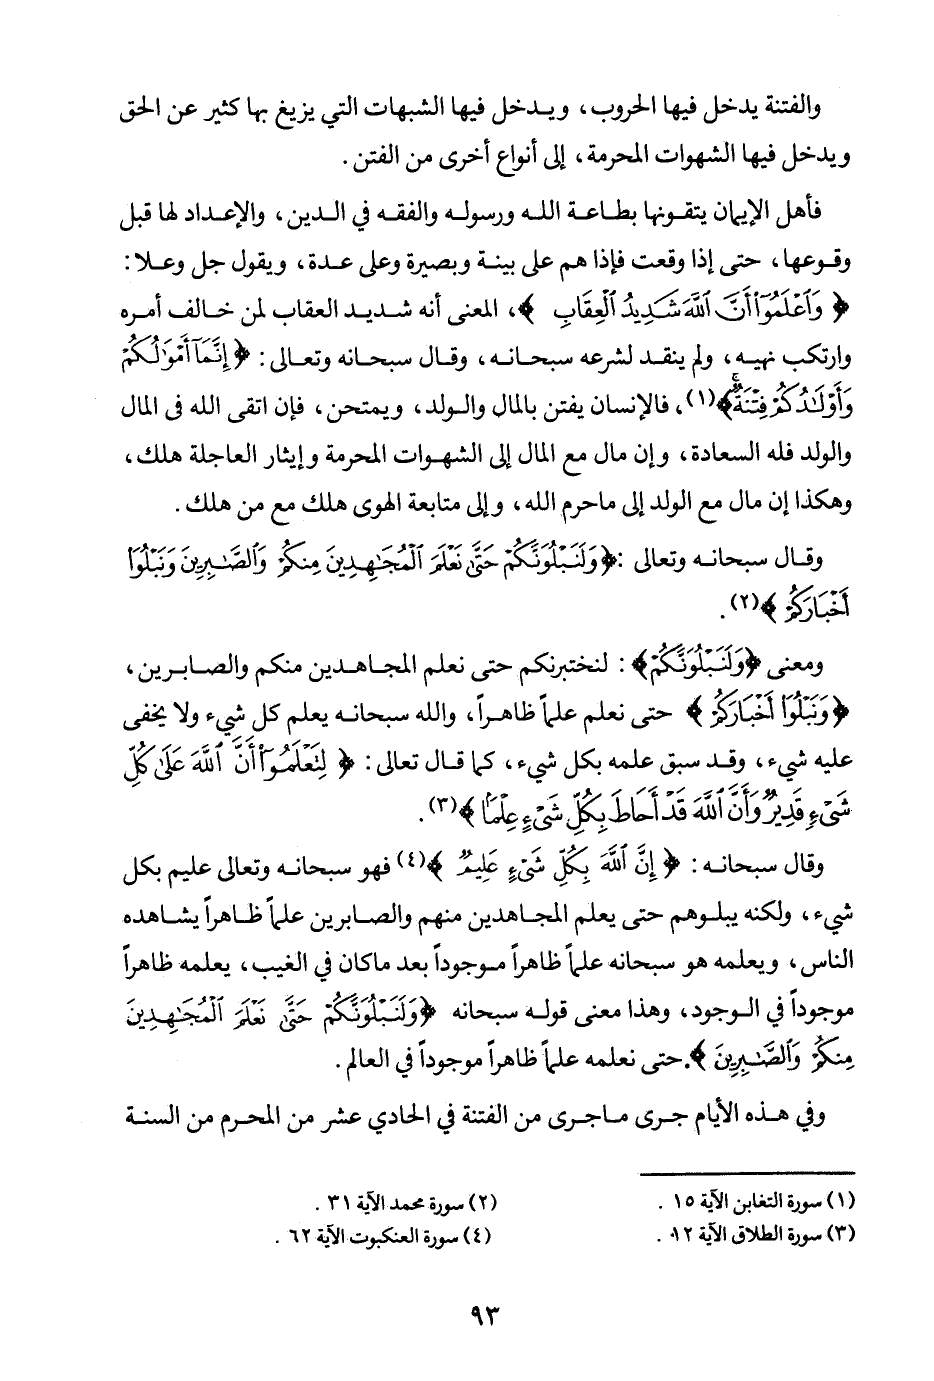 والفتنة يدخل فيها الحروب، ويدخل فيها الشبهات التي يزيغ بها كثير عن الحق
ويدخل فيها الشهوات المحرمة، إلى أنواع أخرى من الفتن.
فأهل الإيمان يتقونها بطاعة الله ورسوله والفقه في الدين، والإعداد لها قبل
وقوعها، حتى إذا وقعت فإذا هم على بينة وبصيرة وعلى عدة، ويقول جل وعلا:
﴿ وَٱعْلَمُوٓا۟ أَنَّ ٱللَّهَ شَدِيدُ ٱلْعِقَابِ ﴾، المعنى أنه شديد العقاب لمن خالف أمره
وارتكب نهيه، ولم ينقد لشرعه سبحانه، وقال سبحانه وتعالى: ﴿ إِنَّمَآ أَمْوَٰلُكُمْ
وَأَوْلَٰدُكُمْ فِتْنَةٌ ۚ ﴾(١)، فالإنسان يفتن بالمال والولد، ويمتحن، فإن اتقى الله فى المال
والولد فله السعادة، وإن مال مع المال إلى الشهوات المحرمة وإيثار العاجلة هلك،
وهكذا إن مال مع الولد إلى ماحرم الله، وإلى متابعة الهوى هلك مع من هلك.
وقال سبحانه وتعالى :﴿وَلَنَبْلُوَنَّكُمْ حَتَّىٰ نَعْلَمَ ٱلْمُجَٰهِدِينَ مِنكُمْ وَٱلصَّٰبِرِينَ وَنَبْلُوَا۟
أَخْبَارَكُمْ ﴾(٢).
ومعنى ﴿وَلَنَبْلُوَنَّكُمْ﴾: لنختبرنكم حتى نعلم المجاهدين منكم والصابرين،
﴿ وَنَبْلُوَا۟ أَخْبَارَكُمْ ﴾ حتى نعلم علماً ظاهراً، والله سبحانه يعلم كل شيء ولا يخفى
عليه شيء، وقد سبق علمه بكل شيء، كما قال تعالى: ﴿ لِتَعْلَمُوٓا۟ أَنَّ ٱللَّهَ عَلَىٰ كُلِّ
شَىْءٍ قَدِيرٌ وَأَنَّ ٱللَّهَ قَدْ أَحَاطَ بِكُلِّ شَىْءٍ عِلْمًۢا ﴾(٣).
وقال سبحانه: ﴿ إِنَّ ٱللَّهَ بِكُلِّ شَىْءٍ عَلِيمٌ ﴾(٤) فهو سبحانه وتعالى عليم بكل
شيء، ولكنه يبلوهم حتى يعلم المجاهدين منهم والصابرين علماً ظاهراً يشاهده
الناس، ويعلمه هو سبحانه علماً ظاهراً موجوداً بعد ماكان في الغيب، يعلمه ظاهراً
موجوداً في الوجود، وهذا معنى قوله سبحانه ﴿وَلَنَبْلُوَنَّكُمْ حَتَّىٰ نَعْلَمَ ٱلْمُجَٰهِدِينَ
مِنكُمْ وَٱلصَّٰبِرِينَ ﴾.حتى نعلمه علماً ظاهراً موجوداً في العالم.
وفي هذه الأيام جرى ماجرى من الفتنة في الحادي عشر من المحرم من السنة
(١) سورة التغابن الآية ١٥ .
(٢) سورة محمد الآية ٣١ .
(٣) سورة الطلاق الآية ١٢ .
(٤) سورة العنكبوت الآية ٦٢ .
٩٣